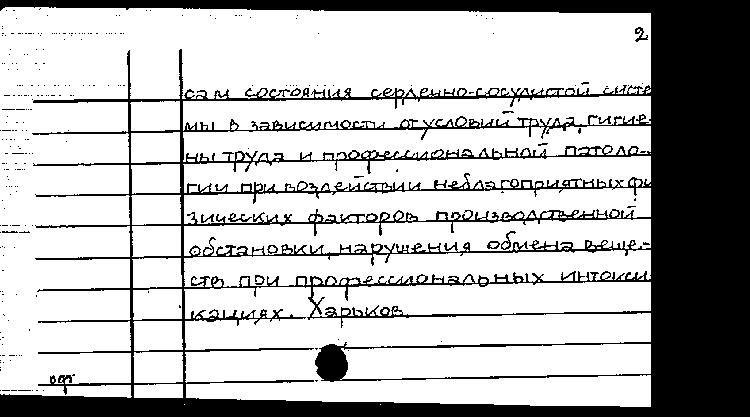 2
сам состояния сердечно-сосудистой систе
мы в зависимости от условий труда, гигие-
ны труда и профессиональной патоло-
гии при воздействии неблагоприятных фи
зических факторов производственной
обстановки, нарушения обмена веще-
ств при профессиональных интокси
кациях. Харьков.